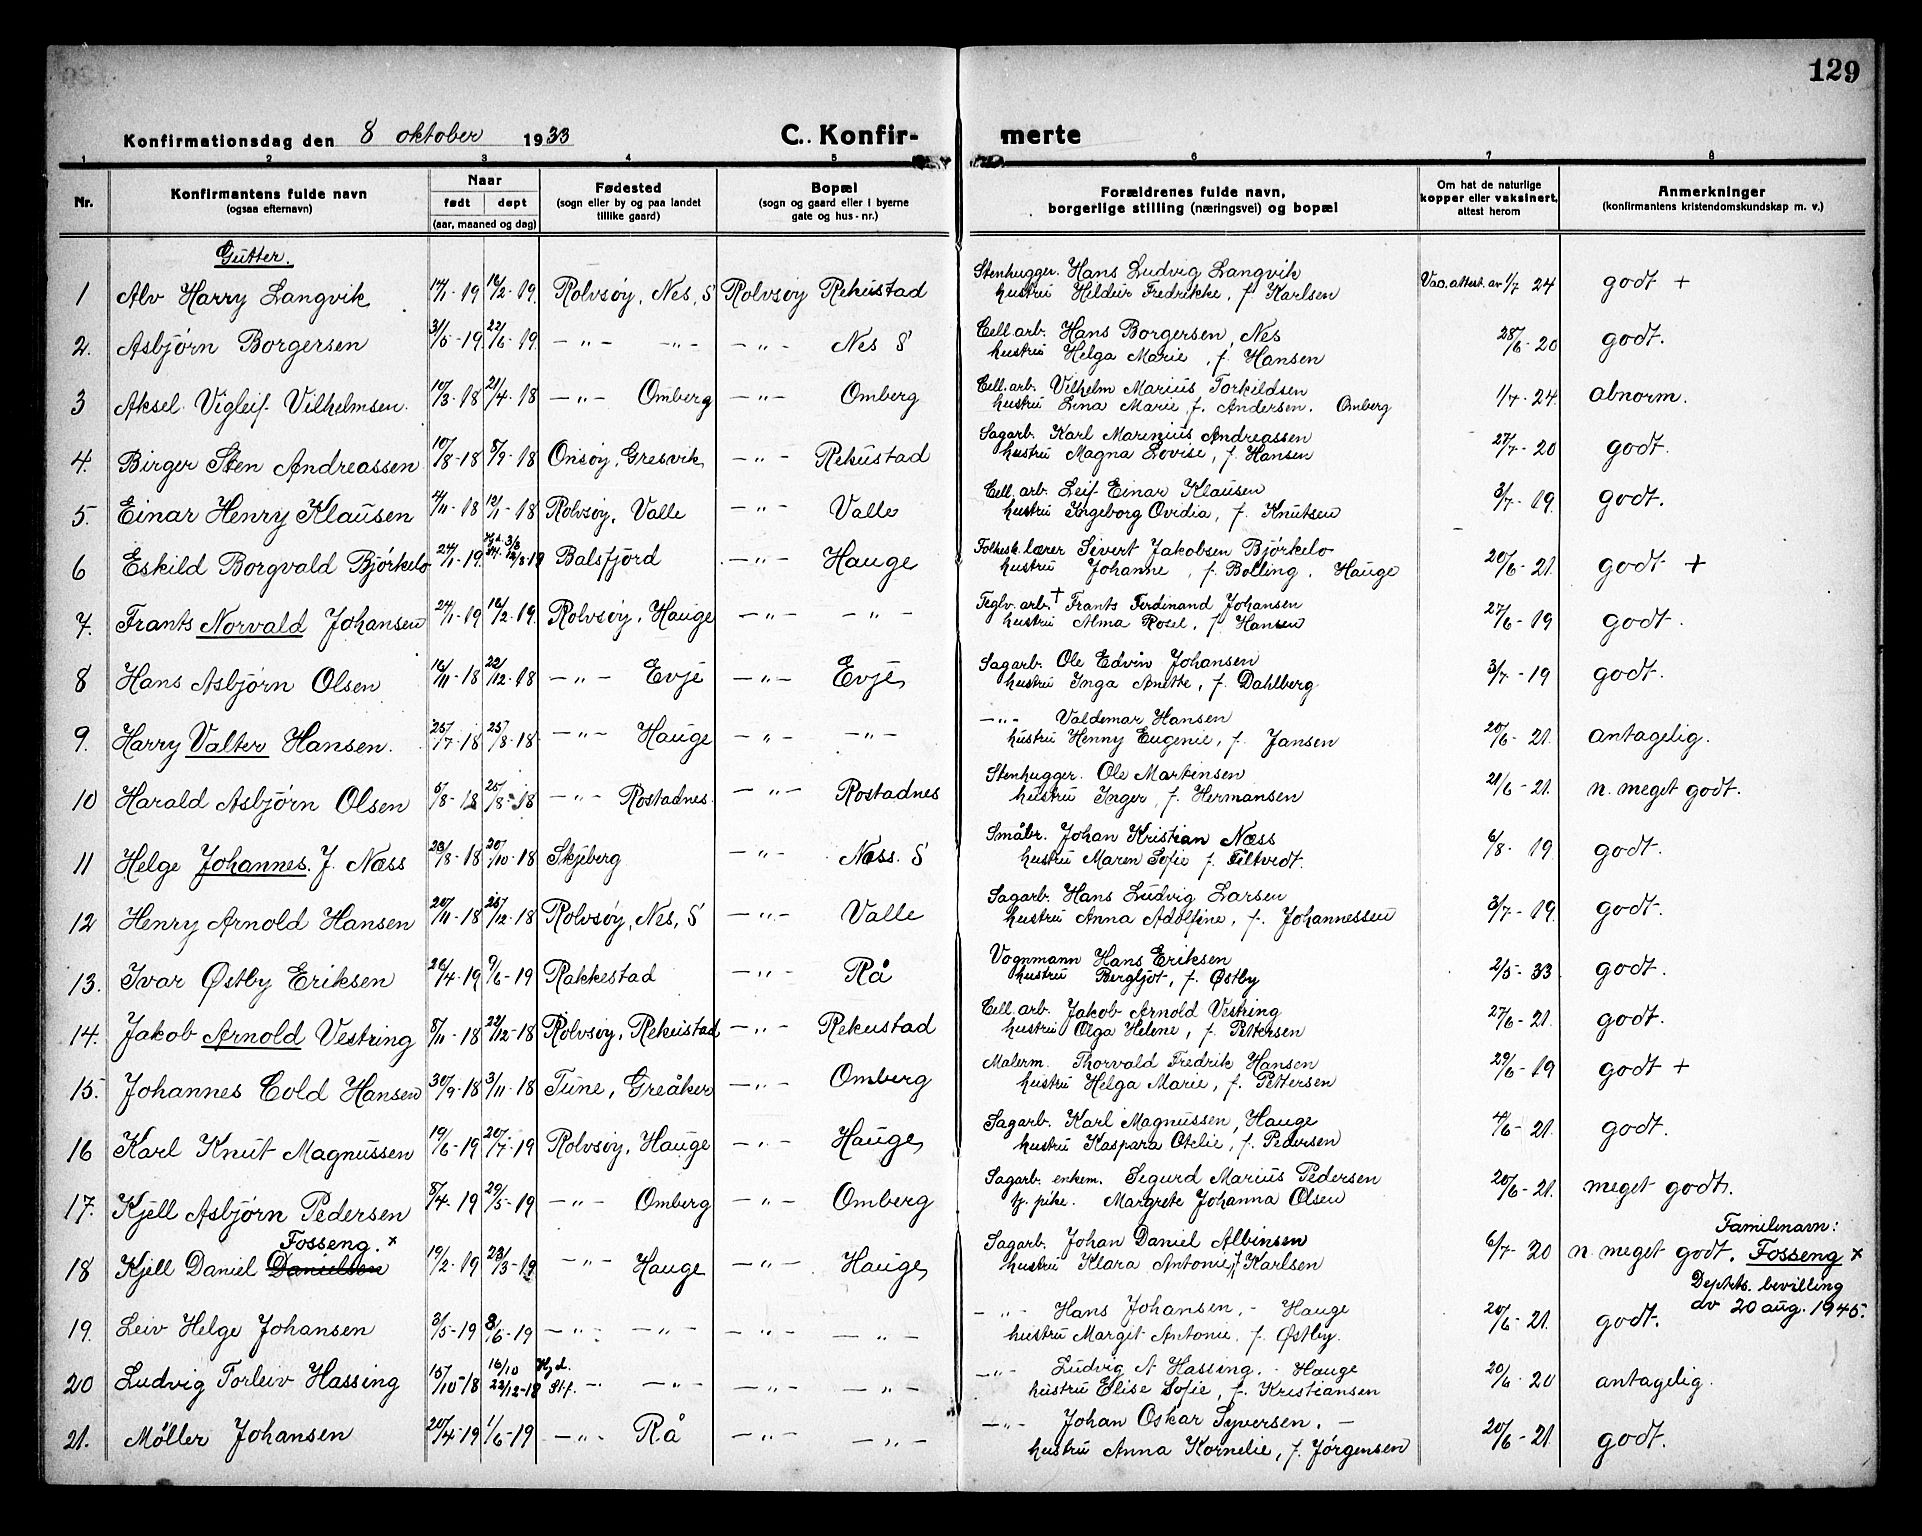 129
Konfirmationsdag den 8 oktober 1933 C. Konfirmerte
1 2 3 4 5 6 7 8
Nr. Konfirmantens fulde navn (ogsaa efternavn) Naar født døpt (aar, maaned og dag) Fødested (sogn eller by og paa landet tillike gaard) Bopæl (sogn og gaard eller i byerne gate og hus-nr.) Forældrenes fulde navn, borgerlige stilling (næringsvei) og bopæl Om hat de naturlige kopper eller vaksinert, attest herom Anmerkninger (konfirmantens kristendomskundskap m. v.)
Gutter.
1 Alv Harry Langvik 14/1-19 16/2-19. Rolvsøy, Nes, S Rolvsøy Rekustad Stenhugger. Hans Ludvig Langvik Vac.attest. av 1/7 24 godt +
hustru Hildur Fredrikke, f. Karlsen
2. Asbjørn Borgersen 3/5-19 22/6-19. -"- -"- -"- Nes S Cell.arb. Hans Borgersen, Nes 28/6-20 godt.
hustru Helga Marie, f. Hansen
3 Aksel Vigleif Vilhelmsen. 10/3-18 21/4-18 -"- Omberg -"- Omberg Cell.arb. Vilhelm Marius Torkildsen 1/7-24. abnorm.
hustru Lina Marie f. Andersen. Omberg
4. Birger Sten Andreassen 10/8-18 8/9-18 Onsøy, Gresvik -"- Rekustad Sagarb. Karl Marinius Andreassen 27/7-20 godt.
hustru Magna Lovise, f. Hansen
5. Einar Henry Klausen 4/11-18 12/1-18 Rolvsøy, Valle -"- Valle Cell.arb. Leif Einar Klausen 3/7-19. godt.
hustru Ingeborg Ovidia, f. Knutsen
6 Eskild Borgvald Bjørkelo 24/1-19. Hjd. 3/3 St. 12/8-19 Balsfjord -"- Hauge Folkesk.lærer Sivert Jakobsen Bjørkelo 20/6-21. godt +
hustru Johanne, f. Bolling. Hauge
7. Frants Norvald Johansen 24/1-19 16/2-19. Rolvsøy, Hauge -"- -"- Teglv.arb. + Frants Ferdinand Johansen 27/6-19 godt.
hustru Alma Rosel, f. Hansen
8 Hans Asbjørn Olsen 16/11-18 22/12-18 -"- Evje -"- Evje Sagarb. Ole Edvin Johansen 3/7-19 godt.
hustru Inga Anette, f. Dahlberg
9. Harry Valter Hansen. 25/7-18 25/8-18 -"- Hauge -"- -"- -"- Valdemar Hansen 20/6-21. antagelig.
hustru Henny Eugenie, f. Jansen
10 Harald Asbjørn Olsen 5/8-18 25/8-18 -"- Rostadnes. -"- Rostadnes Stenhugger. Ole Martinsen 21/6-21. n. meget godt.
hustru Inger, f. Hermansen
11 Helge Johannes. J. Næss 23/8-18 20/10-18 Skjeberg -"- Næss. S Småbr. Johan Kristian Næss 6/8-19. godt.
hustru Maren Sofie f. Filtvedt.
12 Henry Arnold Hansen 20/11-18 25/12-18 Rolvsøy, Nes, S -"- Valle Sagarb. Hans Ludvig Larsen 3/7-19. godt.
hustru Anna Adolfine, f. Johannessen
13. Ivar Østby Eriksen 26/4-19 9/6-19 Rakkestad -"- Rå Vognmann Hans Eriksen 2/5-33 godt.
hustru Bergljot, f. Østby
14. Jakob Arnold Vestring 8/11-18 22/12-18 Rolvsøy, Rekustad -"- Rekustad Cell.arb. Jakob Arnold Vestring 27/6-21. godt.
hustru Olga Helene, f. Pettersen
15. Johannes Cold Hansen 30/9-18 3/11-18 Tune, Greåker -"- Omberg Malerm. Thorvald Fredrik Hansen 29/6-19 godt +
hustru Helga Marie, f. Pettersen
16 Karl Knut Magnussen 19/6-19 20/7-19 Rolvsøy, Hauge -"- Hauge Sagarb. Karl Magnussen, Hauge 4/6-21. godt.
hustru Kaspara Otelie, f. Pedersen
17. Kjell Asbjørn Pedersen 8/4-19 29/5-19 -"- Omberg -"- Omberg Sagarb. enkem. Sigurd Marius Pedersen 20/6-21. meget godt.
tj. pike. Margrete Johanna Olsen
Fosseng. x Familienavn:
18 Kjell Daniel Danielsen 19/2-19 23/3-19 -"- Hauge -"- Hauge Sagarb. Johan Daniel Albinsen 6/7-20 n. meget godt. Fosseng x
hustru Klara Antonie, f. Karlsen
Deptets. bevilling
av 20 aug. 1945.
19. Leiv Helge Johansen 3/5-19 8/6-19 -"- -"- -"- -"- -"- Hans Johansen, - Hauge 20/6-21. godt.
hustru Margit Antonie, f. Østby.
20 Ludvig Torleiv Hassing 15/10-18 16/10 Hjd. 22/12-18 St.f. -"- -"- -"- -"- -"- Ludvig A Hassing. - Hauge 20/6-20 antagelig.
hustru Elise Sofie, f. Kristiansen
21. Møller Johansen 20/4-19 1/6-19 -"- Rå -"- -"- -"- Johan Oskar Syversen. - 20/6-21. godt.
hustru Anna Kornelie, f. Jørgensen